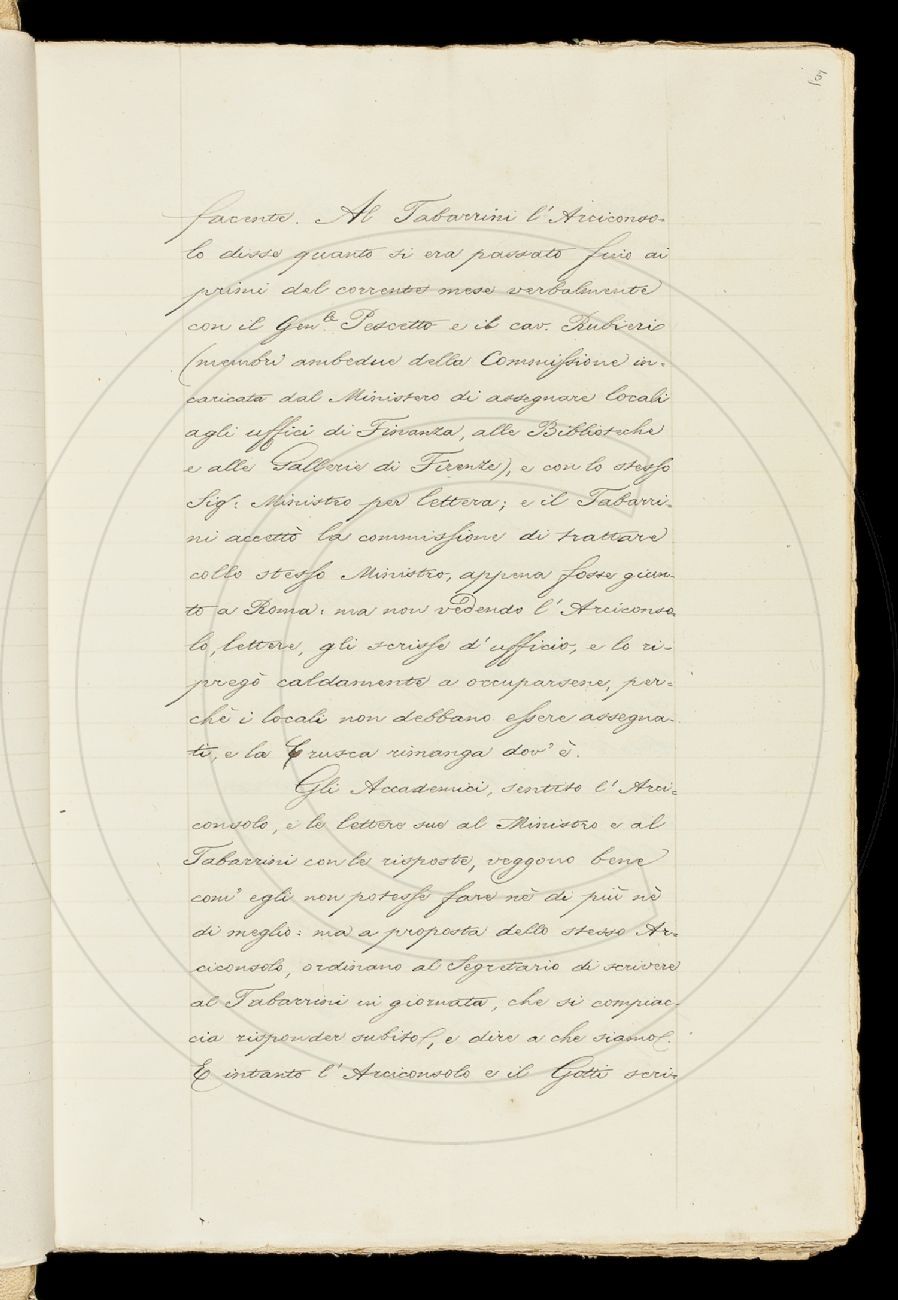 facente. Al Tabarrini l'Arciconso-
lo disse quanto si era passato fino ai
primi del corrente mese verbalmente
con il Gen.le Pescetto e il cav. Rubieri
(membri ambedue della Commissione in-
caricata dal Ministero di assegnare locali
agli uffici di Finanza, alle Biblioteche
e alle Gallerie di Firenze), e con lo stesso
Sig: Ministro per lettera; e il Tabarri-
ni accettò la commissione di trattare
collo stesso Ministro, appena fosse giun-
to a Roma: ma non vedendo l'Arciconso-
lo, lettere, gli scrisse d'ufficio, e lo ri-
pregò caldamente a occuparsene, per-
chè i locali non debbano essere assegna-
ti, e la Crusca rimanga dov'è.
Gli Accademici, sentito l'Arci-
consolo, e le lettere sue al Ministro e al
Tabarrini con le risposte, veggono bene
com'egli non potesse fare nè di più nè
di meglio: ma a proposta dello stesso Ar-
ciconsolo, ordinano al Segretario di scrivere
al Tabarrini in giornata, che si compiac-
cia risponder subito, e dire a che siamo.
E intanto l'Arciconsolo e il Gotti scri-